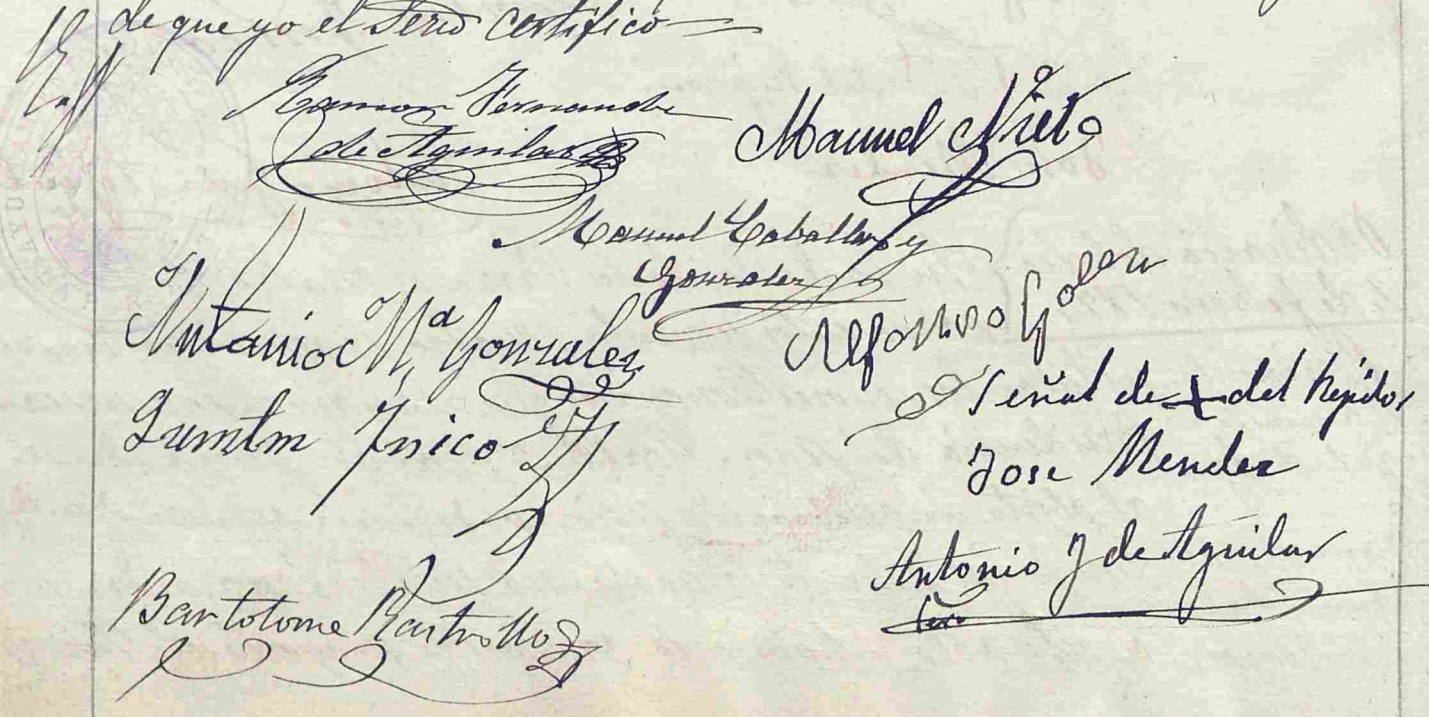 de que yo el Serio certifico
Ramon Fernandez
de Aguilar
Manuel Nieto
Manuel Caballero y
Gonzalez
Antonio Mª Gonzalez
Alfonso
Señal de + del Rejidor
Jose Mendez
Antonio J de Aguilar
Serio
Bartolome Rastrollo